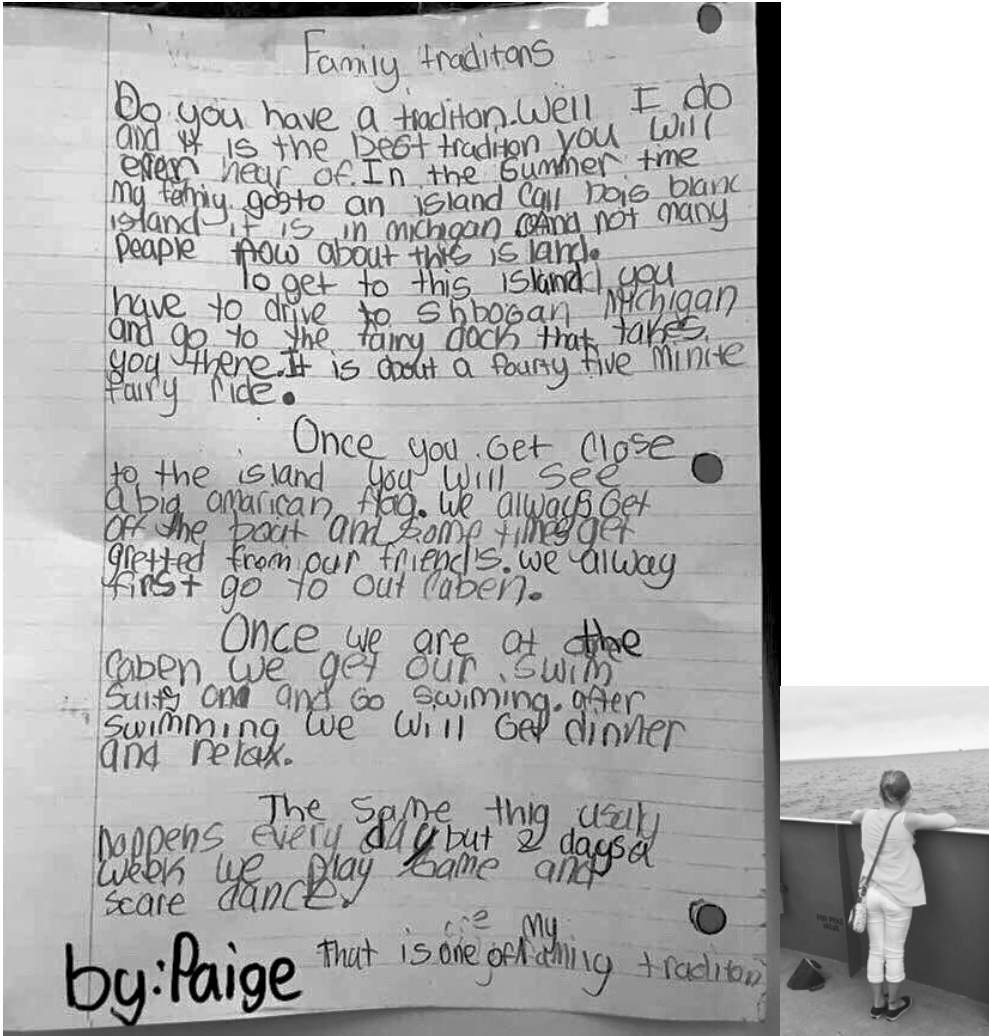 Family traditons
Do you have a traditon. Well I do
and it is the best tradition you will
even hear of. In the summer tme
my famiy gosto an island call bois blanc
island it is in michigan And not many
peaple know about this island.
To get to this island you
have to drive to shbogan Michigan
and go to the fairy dock that takes
you there. It is about a fourty five minite
fairy ride.
Once you get close
to the island you will see
a big amarican flag. we always get
off the boat and some times get
gretted from our friends. we alway
first go to out caben.
Once we are at the
caben we get our swim
suits and and go swiming. after
swimming we will get dinner
and relax.
The same thig usaly
happens every day but 2 days a
week we play game and
scare dance.
My
that is one of traditon
by: Paige